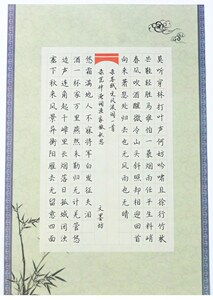 莫听穿林打叶声何妨吟啸且徐行竹杖
芒鞋轻胜马谁怕一蓑烟雨任平生料峭
春风吹酒醒微冷山头斜照却相迎回首
向来萧瑟处归去也无风雨也无晴
录苏轼定风波词一首
录范仲淹词渔家傲秋思
文墨坊
塞下秋来风景异衡阳雁去无留意四面
边声连角起千嶂里长烟落日孤城闭浊
酒一杯家万里燕然未勒归无计羌管悠
悠霜满地人不寐将军白发征夫泪